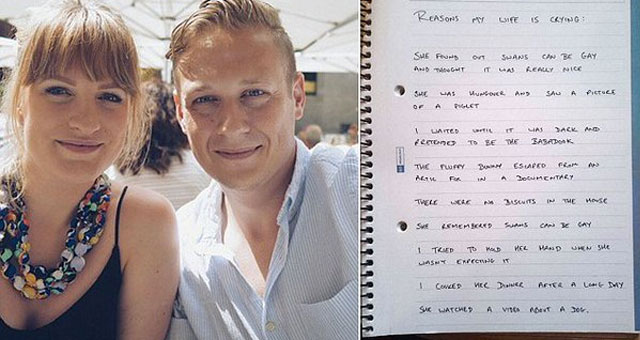 REASONS MY WIFE IS CRYING:
SHE FOUND OUT SWANS CAN BE GAY
AND THOUGHT IT WAS REALLY NICE
SHE WAS HUNGOVER AND SAW A PICTURE
OF A PIGLET
I WAITED UNTIL IT WAS DARK AND
PRETENDED TO BE THE BABADOOK
THE FLUFFY BUNNY ESCAPED FROM AN
ARTIC FOX IN A DOCUMENTARY
THERE WERE NO BISCUITS IN THE HOUSE
SHE REMEMBERED SWANS CAN BE GAY
I TRIED TO HOLD HER HAND WHEN SHE
WASN'T EXPECTING IT
I COOKED HER DINNER AFTER A LONG DAY
SHE WATCHED A VIDEO ABOUT A DOG.